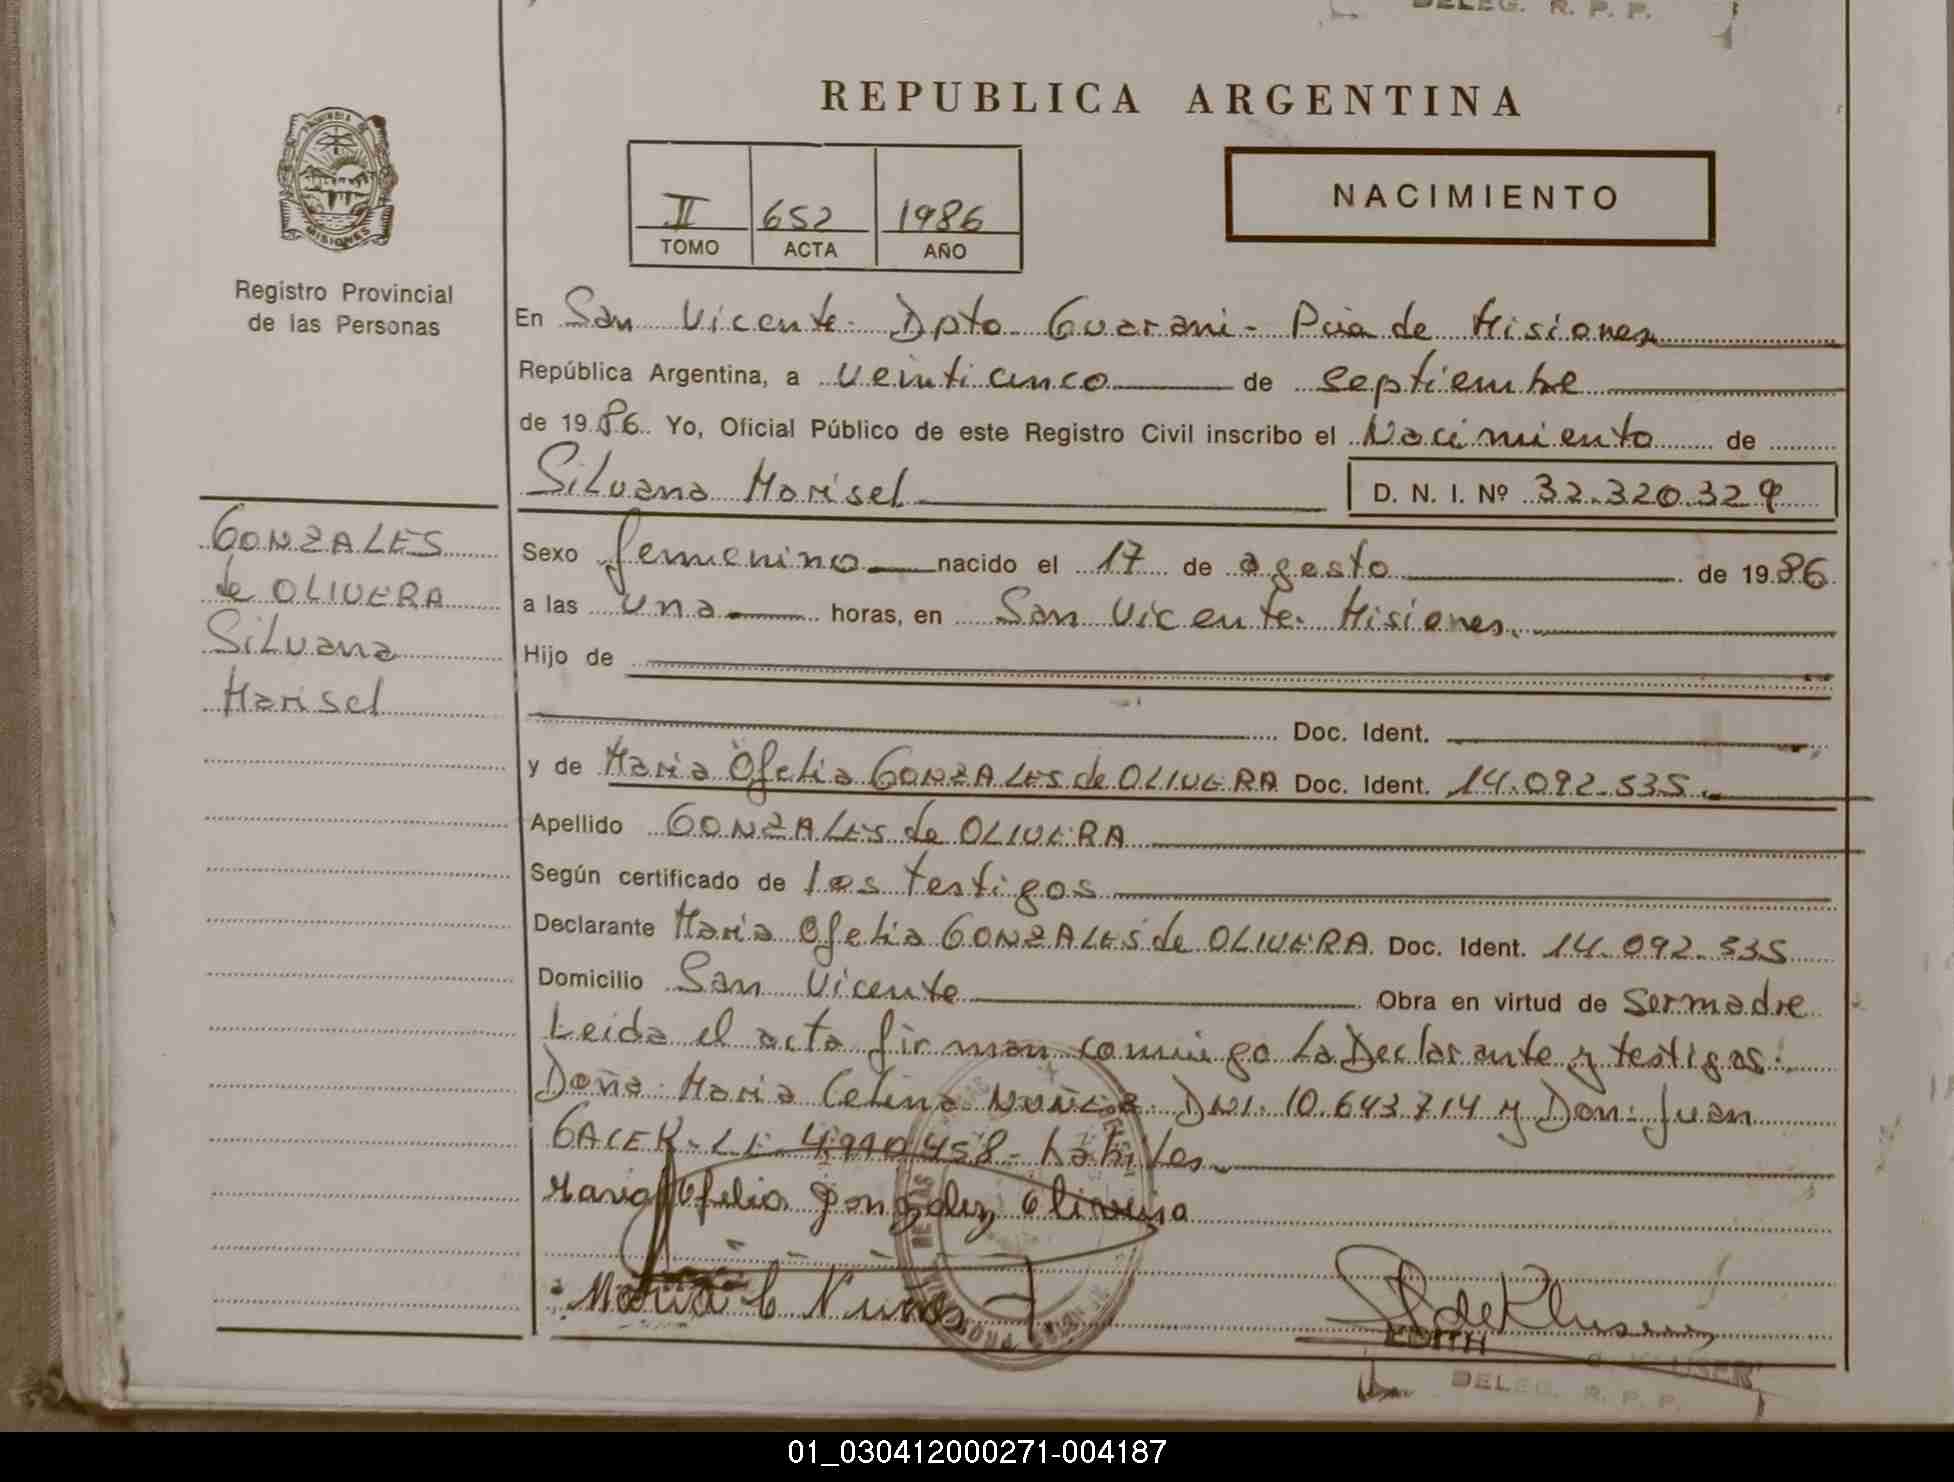 DELEG. R. P. P.
REPUBLICA ARGENTINA
MISIONES
Registro Provincial
de las Personas
II 652 1986
TOMO ACTA AÑO
NACIMIENTO
En San Vicente - Dpto Guarani - Pcia de Misiones
República Argentina, a veinticinco de septiembre
de 1986. Yo, Oficial Público de este Registro Civil inscribo el Nacimiento de
Silvana Marisel D. N. I. Nº 32.320.329
GONZALES
de OLIVERA
Silvana
Marisel
Sexo femenino nacido el 17 de agosto de 1986
a las una horas, en San Vicente. Misiones.
Hijo de
Doc. Ident.
y de Maria Ofelia GONZALES de OLIVERA Doc. Ident. 14.092.535.
Apellido GONZALES de OLIVERA
Según certificado de los testigos
Declarante Maria Ofelia GONZALES de OLIVERA Doc. Ident. 14.092.535
Domicilio San Vicente Obra en virtud de Ser madre
Leida el acta firman conmigo La Declarante y testigos:
Doña: Maria Celina NUÑEZ DNI. 10.643.714 y Don: Juan
LE 4990458 - habiles
Maria Ofelia gonzalez Oliveira
Maria C Nuñes
EDITH KLUSER
DELEG. R. P. P.
01_030412000271-004187